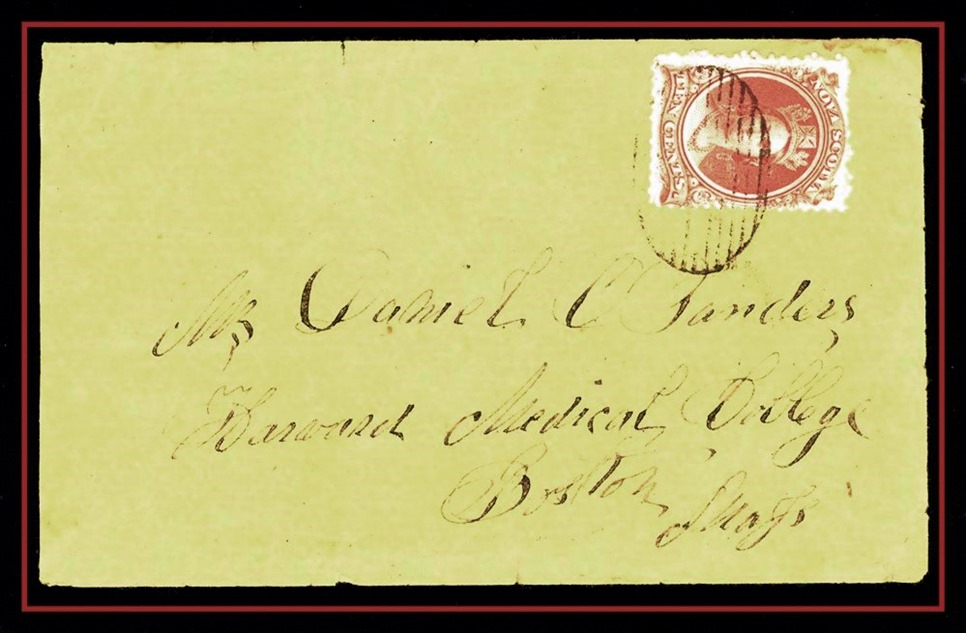 Mr Daniel C Sanders,
Harvard Medical College
Boston,
Mass
NOVA SCOTIA
TEN CENTS